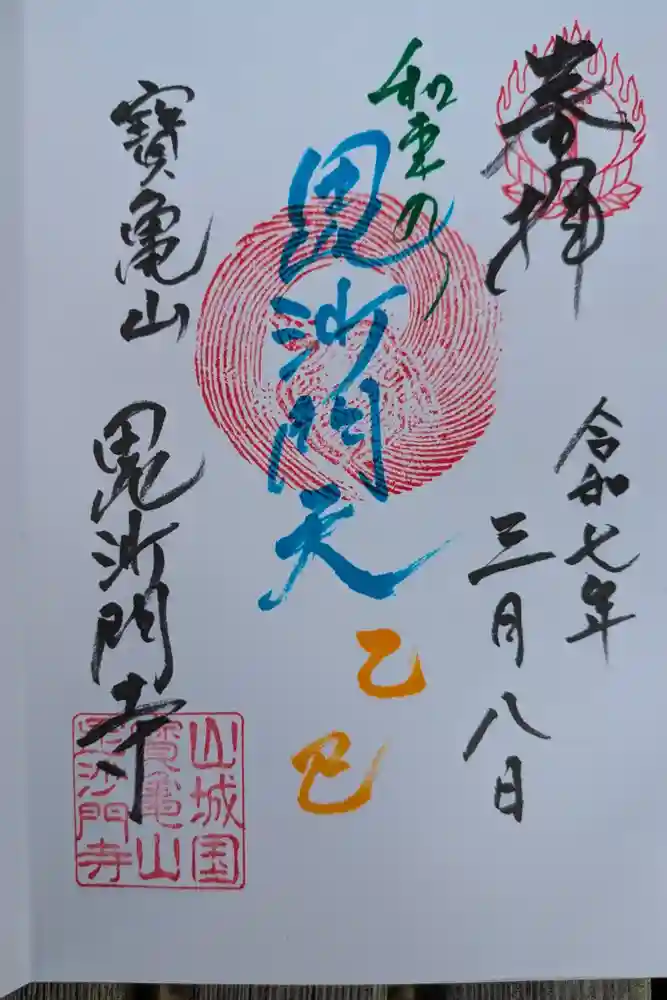 奉拝
令和七年
三月八日
和束の
毘沙門天
乙巳
寶亀山
毘沙門寺
山城国
寶亀山
毘沙門寺